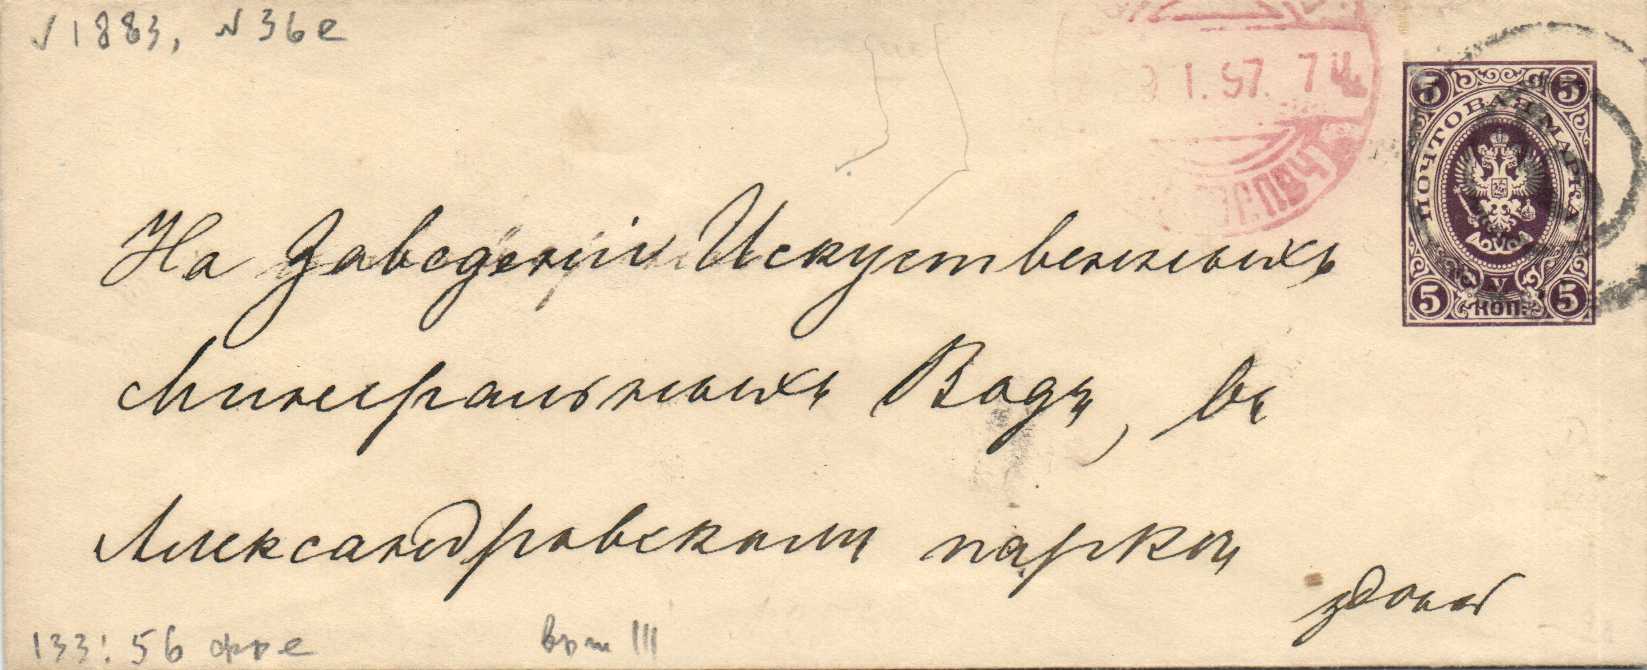 √ 1883, N 36 е
9 I. 97. 7 Ц.
5 ПОЧТОВАЯ МАРКА 5
5 КОП. 5
На Заведенiи Искуственныхъ
Минеральныхъ Водъ, въ
Александровскомъ паркѣ
здѣсь
133: 56
III